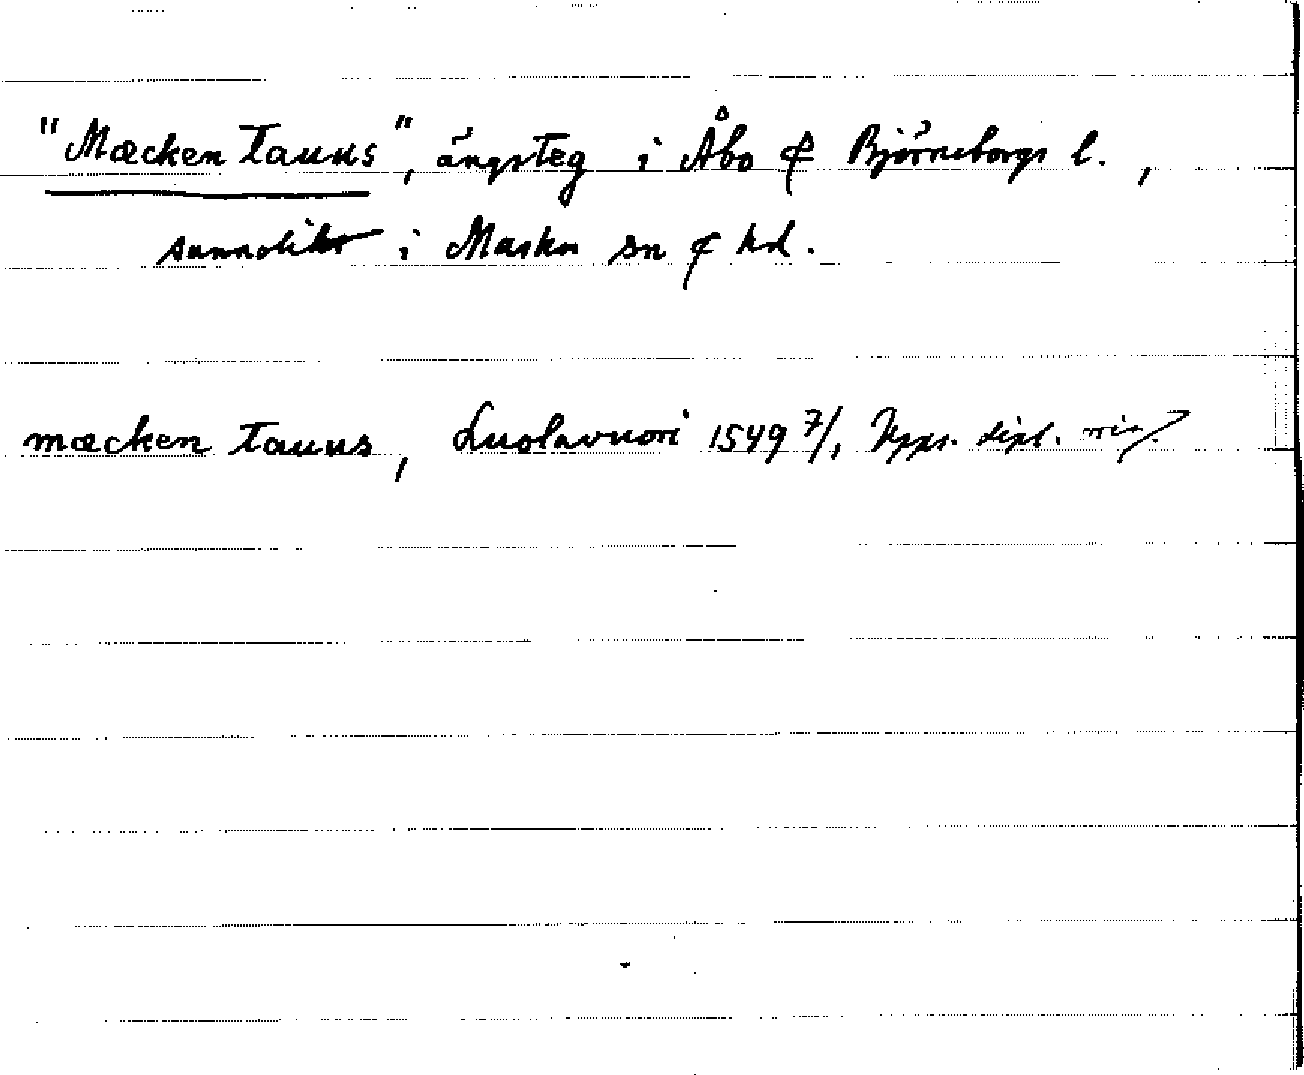 "Mæcken tauus", ängsteg i Åbo & Björneborgs l.,
sannolikt i Masku sn & hd.
mæcken tauus, Luolavuori 1549 7/1 Upps. dipl. mis.